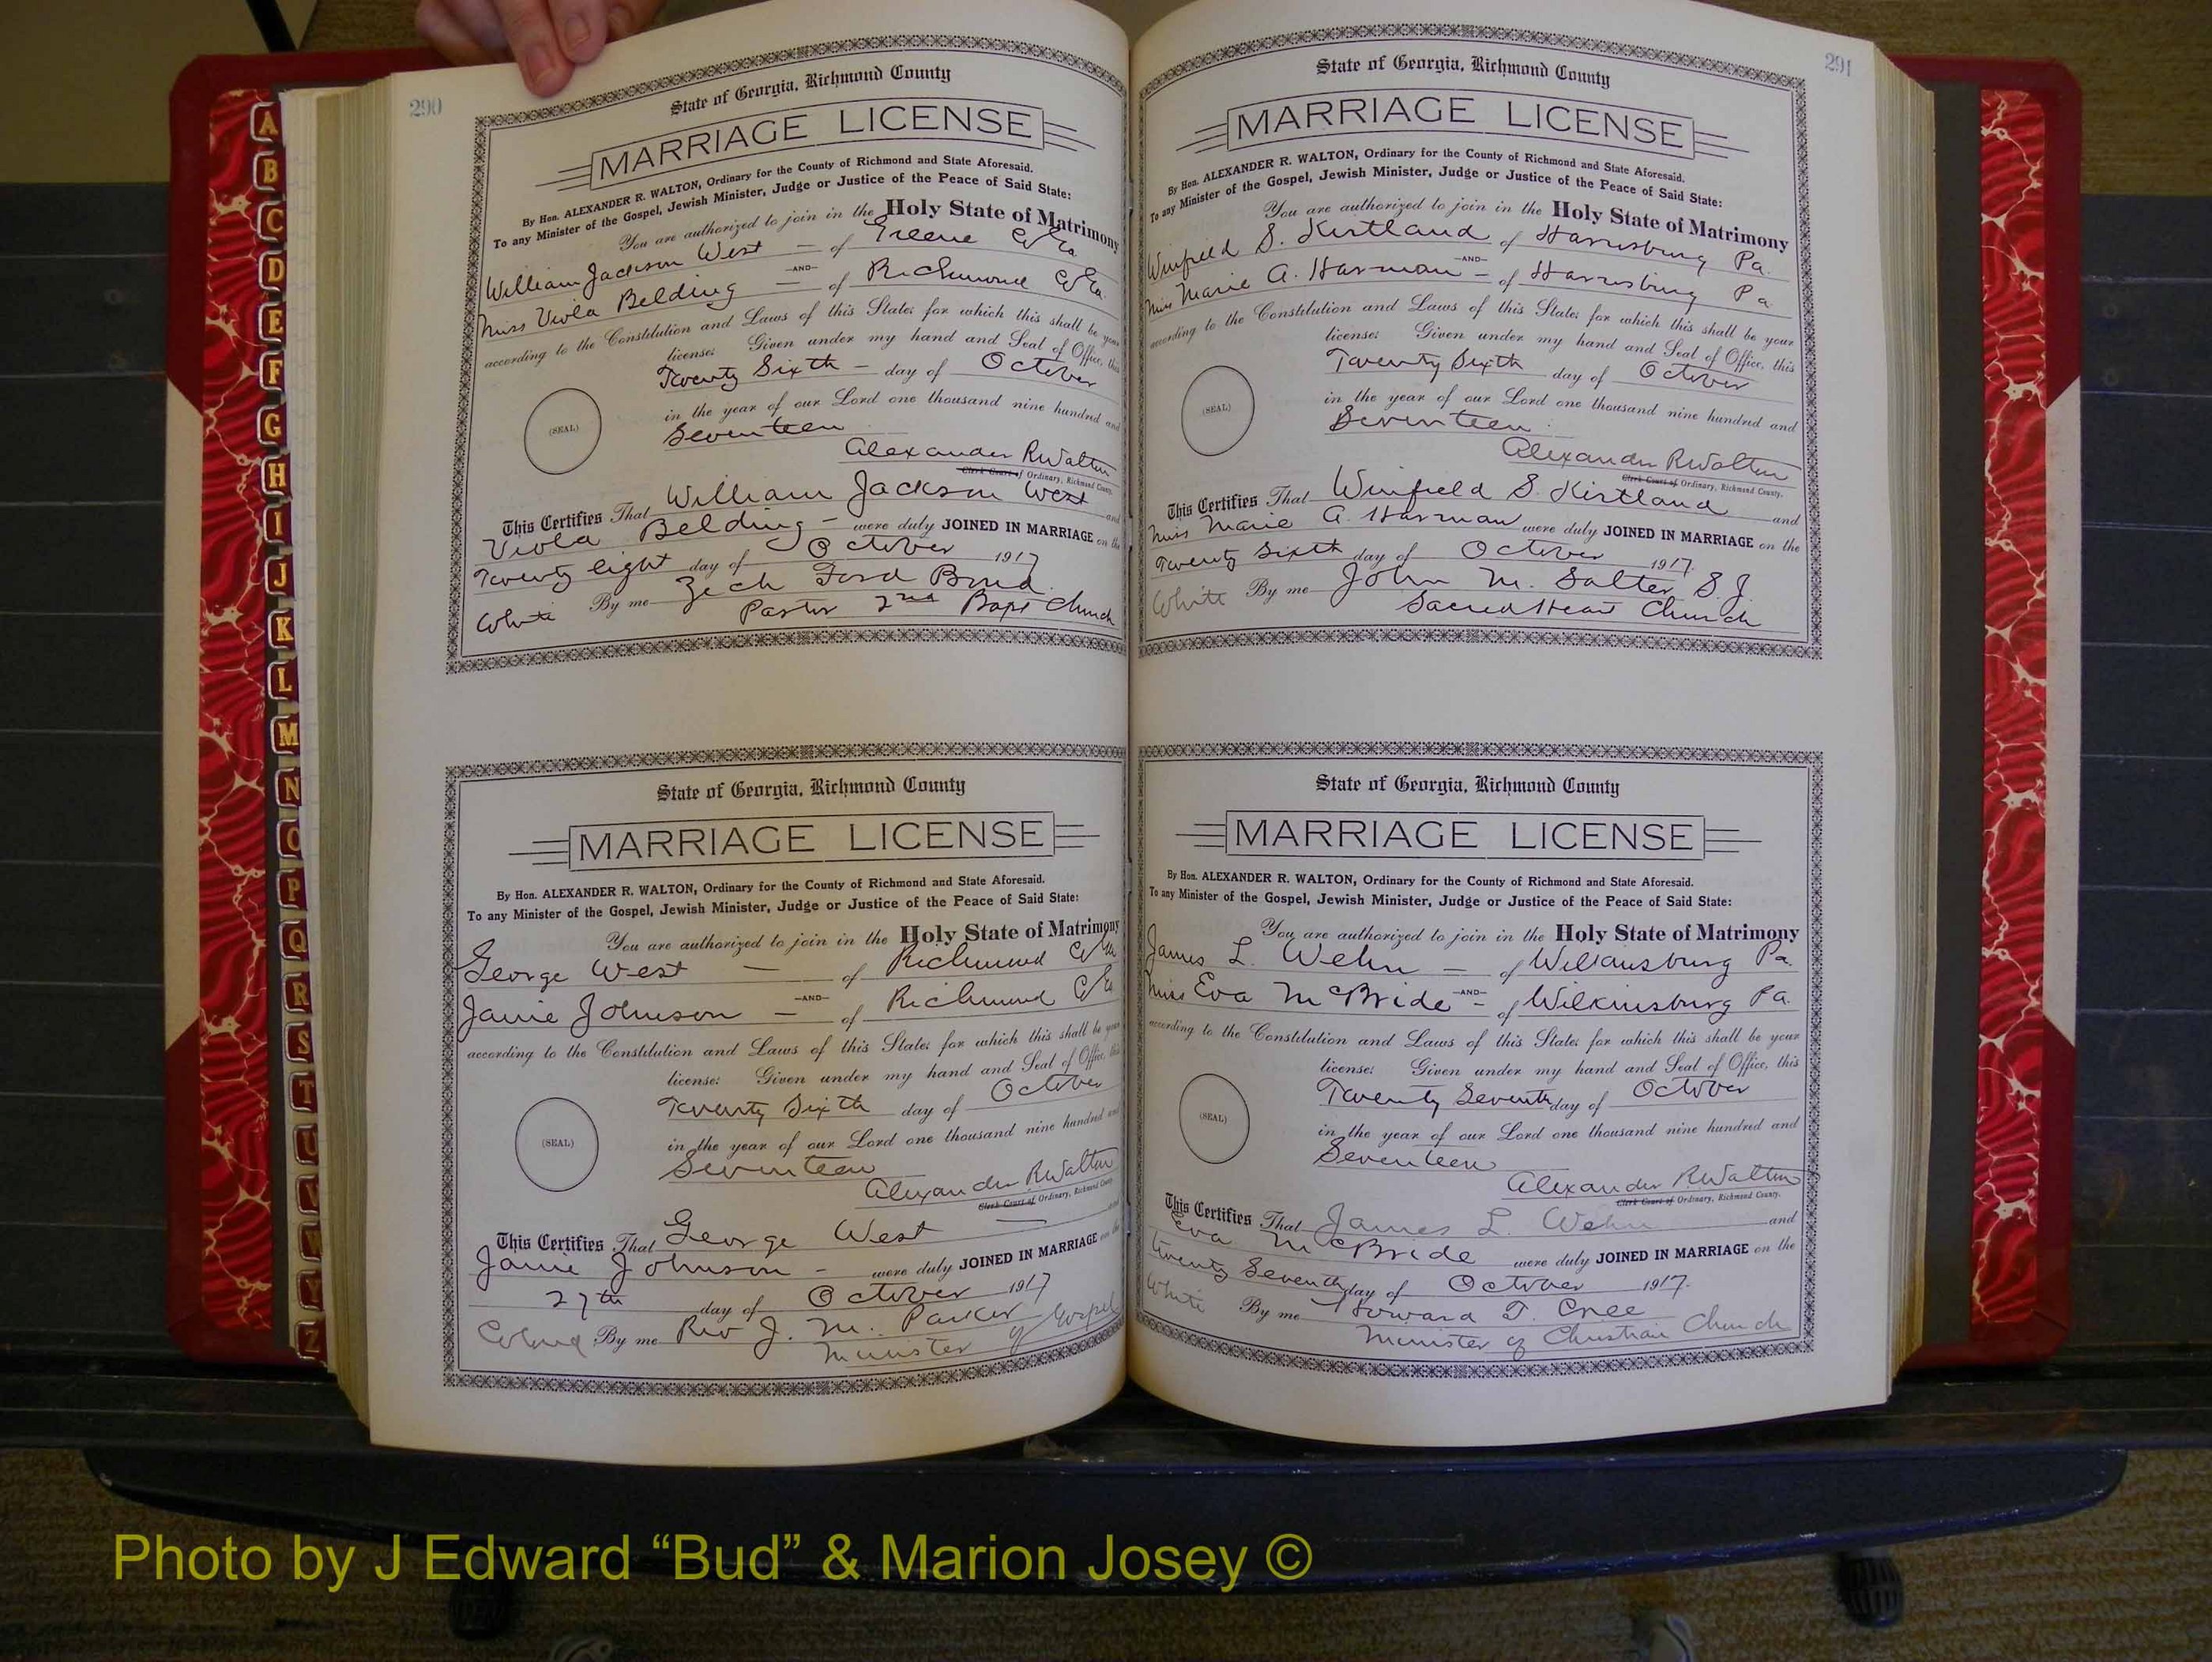 290
State of Georgia, Richmond County
MARRIAGE LICENSE
By Hon. ALEXANDER R. WALTON, Ordinary for the County of Richmond and State Aforesaid.
To any Minister of the Gospel, Jewish Minister, Judge or Justice of the Peace of Said State:
You are authorized to join in the Holy State of Matrimony
William Jackson West — of Greene Co Ga.
—AND—
Miss Viola Belding — of Richmond Co Ga.
according to the Constitution and Laws of this State; for which this shall be your
license: Given under my hand and Seal of Office, this
Twenty Sixth — day of October
(SEAL)
in the year of our Lord one thousand nine hundred and
Seventeen
Alexander R Walton
Clerk Court of Ordinary, Richmond County.
This Certifies That William Jackson West and
Viola Belding — were duly JOINED IN MARRIAGE on the
Twenty eight day of October 1917
White By me Zech Ford Bond
Pastor 2nd Bapt Church
State of Georgia, Richmond County
MARRIAGE LICENSE
By Hon. ALEXANDER R. WALTON, Ordinary for the County of Richmond and State Aforesaid.
To any Minister of the Gospel, Jewish Minister, Judge or Justice of the Peace of Said State:
You are authorized to join in the Holy State of Matrimony
George West — of Richmond Co Ga
—AND—
Janie Johnson — of Richmond Co Ga.
according to the Constitution and Laws of this State; for which this shall be your
license: Given under my hand and Seal of Office, this
Twenty Sixth day of October
(SEAL)
in the year of our Lord one thousand nine hundred and
Seventeen
Alexander R Walton
Clerk Court of Ordinary, Richmond County.
This Certifies That George West — and
Janie Johnson - were duly JOINED IN MARRIAGE on the
27th day of October 1917
Colored By me Rev J. M. Parker
Minister of Gospel
291
State of Georgia, Richmond County
MARRIAGE LICENSE
By Hon. ALEXANDER R. WALTON, Ordinary for the County of Richmond and State Aforesaid.
To any Minister of the Gospel, Jewish Minister, Judge or Justice of the Peace of Said State:
You are authorized to join in the Holy State of Matrimony
Winfield S. Kirtland of Harrisburg Pa.
—AND—
Miss Marie A. Harman — of Harrisburg Pa
according to the Constitution and Laws of this State; for which this shall be your
license: Given under my hand and Seal of Office, this
Twenty Sixth day of October
(SEAL)
in the year of our Lord one thousand nine hundred and
Seventeen
Alexander R Walton
Clerk Court of Ordinary, Richmond County.
This Certifies That Winfield S. Kirtland and
Miss Marie A. Harman were duly JOINED IN MARRIAGE on the
Twenty Sixth day of October 1917.
White By me John M. Salter S.J.
Sacred Heart Church
State of Georgia, Richmond County
MARRIAGE LICENSE
By Hon. ALEXANDER R. WALTON, Ordinary for the County of Richmond and State Aforesaid.
To any Minister of the Gospel, Jewish Minister, Judge or Justice of the Peace of Said State:
You are authorized to join in the Holy State of Matrimony
James L. Wehn — of Wilkinsburg Pa.
—AND—
Miss Eva McBride — of Wilkinsburg Pa.
according to the Constitution and Laws of this State; for which this shall be your
license: Given under my hand and Seal of Office, this
Twenty Seventh day of October
(SEAL)
in the year of our Lord one thousand nine hundred and
Seventeen
Alexander R. Walton
Clerk Court of Ordinary, Richmond County.
This Certifies That James L. Wehn and
Eva McBride were duly JOINED IN MARRIAGE on the
twenty Seventh day of October 1917.
White By me Howard T. Cree
Minister of Christian Church
A
B
C
D
E
F
G
H
I
J
K
L
M
N
O
P
Q
R
S
T
U
V
W
Y
Z
Photo by J Edward “Bud” & Marion Josey ©